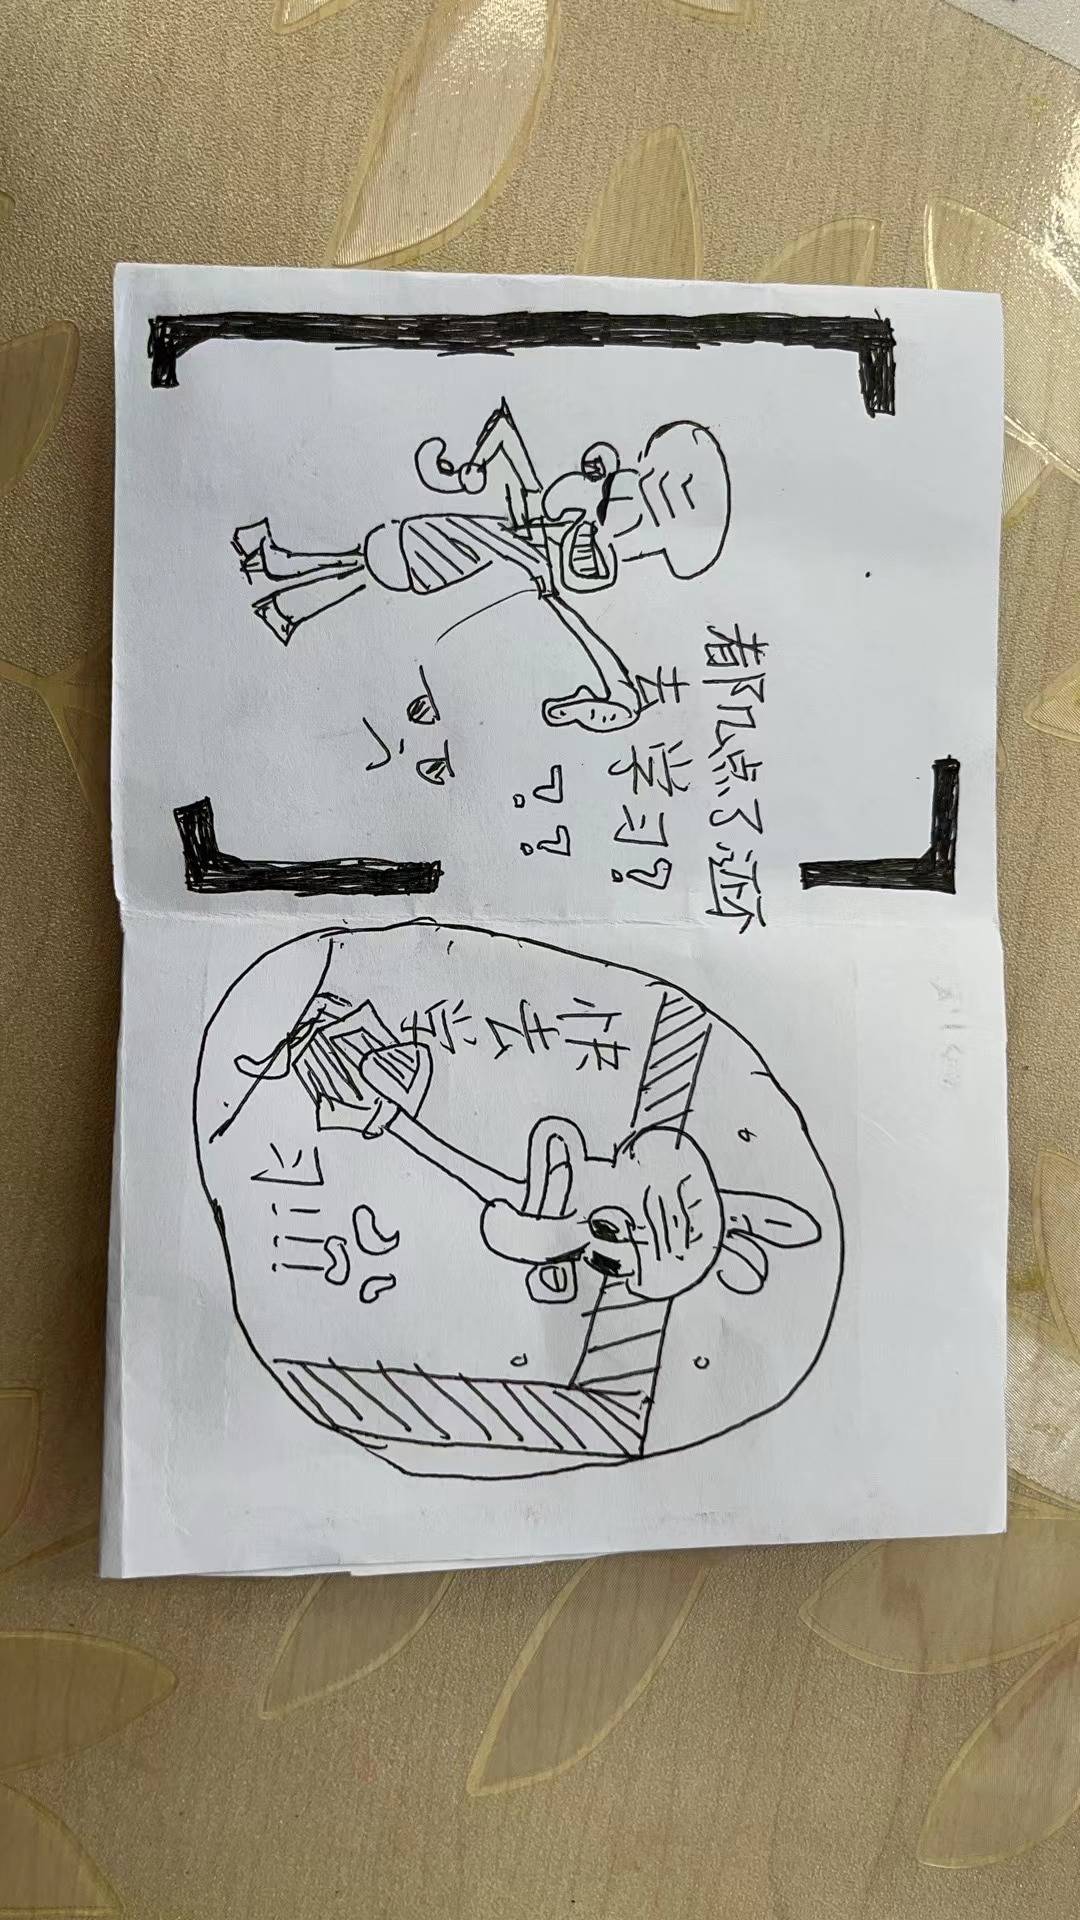 都几点了还
去学习？
？？
快去学
习!!!